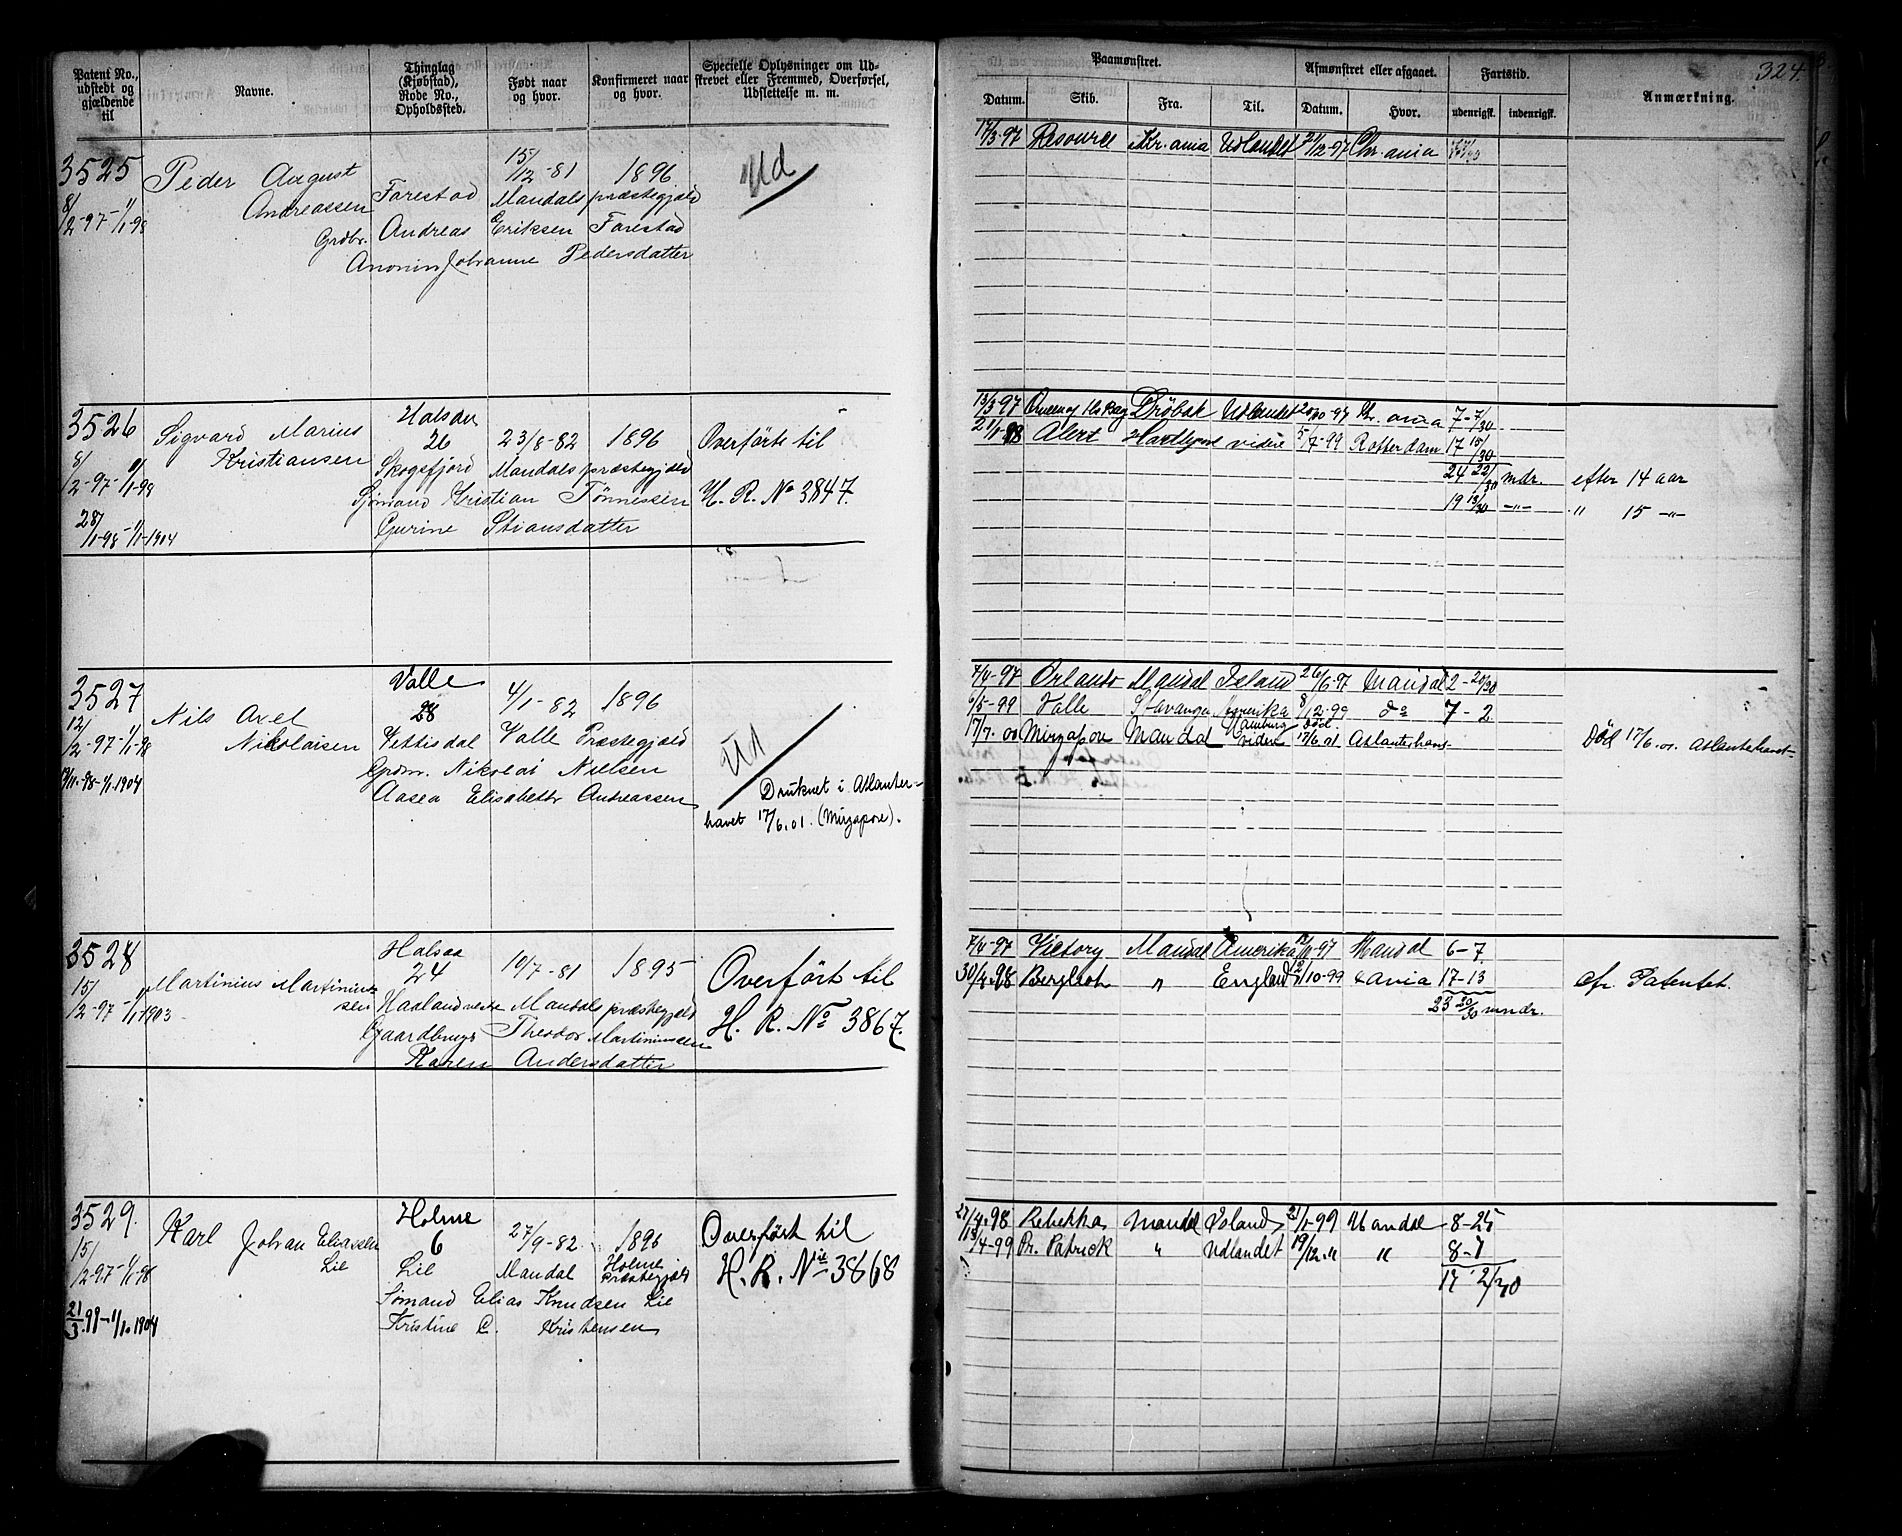 Patent No., udstedt og gjældende til
Navne.
Thinglag (Kjøbstad), Rode No., Opholdssted.
Født naar og hvor.
Konfirmeret naar og hvor.
Specielle Oplysninger om Udskrevet eller Fremmed, Overførsel, Udslettelse m. m.
Paamønstret.
Afmønstret eller afgaaet.
Fartstid.
Anmærkning.
324.
Datum.
Skib.
Fra.
Til.
Datum.
Hvor.
udenrigsk.
indenrigsk.
3525
8/2-97-1/1-98
Peder August
Andreassen
Farestad
15/12-81
Mandals præstegjæld
1896
Grdbr. Andreas Eriksen Farestad
Johanne Pedersdatter
Ud
17/3-97 Resource Kr.ania Udlandet 21/12-97 Chr.ania
3526
8/2-97-1/1-98
28/1-98-1/1-1904
Sigvard Marius
Kristiansen
26
Skogsfjord
23/8-82
Mandals præstegjæld
1896
Sjømand Kristian Tönnessen
Gurine Stiansdatter
Overförts til
H. R. No 3847.
13/3-97 Dröbak Udlandet Kr. ania 7-7/30
Alert Hartlepool videre 5/7-99 Rotterdam 17 15/30
24 22/30 mdr. efter 14 aar
19 13/30 -"- " 15 -"-
3527
12/2-97-1/1-98
Nils Axel
Nikolaisen
Valle
28
Vettisdal
4/1-82
Valle Præstegjæld
1896
Grdm. Nikolai Nielsen
Aasea Elisabeth Andreassen
Ud
Druknet i Atlanter-
havet 17/6.01. (Mirzapore).
7/4-97 Orlando Mandal Island 26/6-97 Mandal 2-20/30
6/5-99 Valle Stavanger Amerika 8/12-99 do 7-2
17/7.00 Mirzapore Mandal Hamburg videre död 17/6.01 Atlanterhav-
Död 17/6.01. Atlanterhavet-
3528
15/2-97-1/1 1903
Martinius Martinius-
sen
Halsaa
24
10/7-81
Mandals præstegjæld
1895
Gaardbruger Theodor Martiniussen
Karen Andersdatter
Overfört til
H. R. No 3867.
7/4-97 Victory Mandal Amerika Mandal 6-7
30/4.98 Bergliot " England 2/10-99 X ania 17-13
23 20/30 mndr.
cfr. Patentet.
3529.
15/2-97-1/1-98
21/3.99-1/1.1904
Karl Johan Eliassen
Lie
Holme
6
Lie
27/9-82.
Mandal
1896
Holme
præstegjæld
Sømand Elias Knudsen Lie
Kristine C. Kristensen
Overfört til
H. R. No 3868
27/4.98 Rebekka Mandal Island 2/1-99 Mandal 8-25
13/4-99 Pr. Patrick " Udlandet 19/12." " 8-7
17-2/30